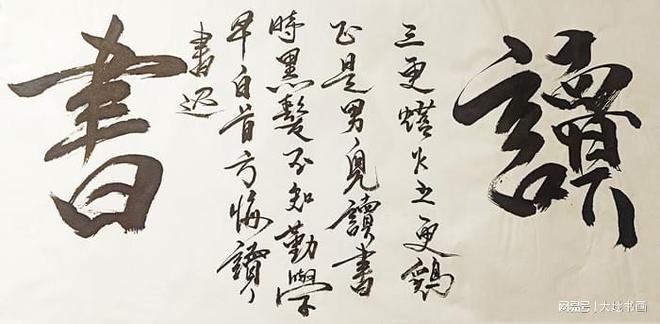 讀
三更燈火五更鷄
正是男兒讀書
時黑髮不知勤學
早白首方悔讀
書遲
書
网易号|大地书画